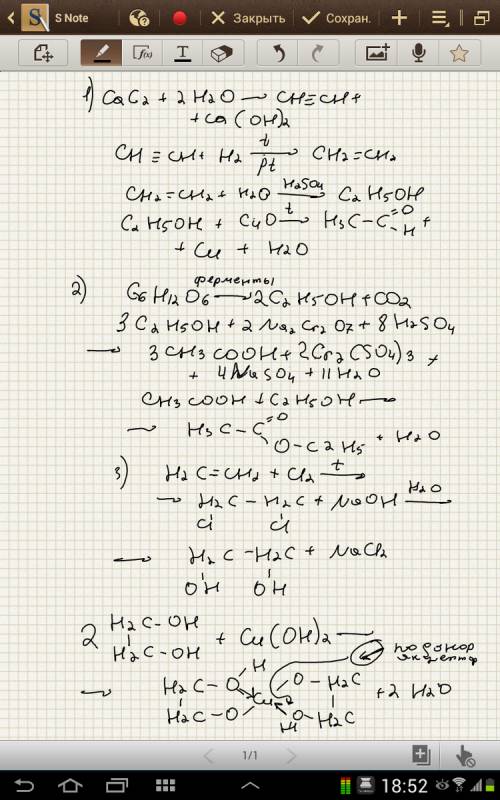 S Note
Закрыть
Сохран.
1) CaC2 + 2H2O → CH≡CH +
+ Ca(OH)2
CH≡CH + H2 t Pt → CH2=CH2
CH2=CH2 + H2O H2SO4 → C2H5OH
C2H5OH + CuO t → H3C-C =O H +
+ Cu + H2O
2) C6H12O6 ферменты → 2C2H5OH + CO2
3C2H5OH + 2Na2Cr2O7 + 8H2SO4
→ 3CH3COOH + 2Cr2(SO4)3 +
+ 4NaSO4 + 11H2O
CH3COOH + C2H5OH —
→ H3C-C =O O-C2H5 + H2O
3) H2C=CH2 + Cl2 t →
→ H2C-H2C + NaOH H2O →
Cl Cl
→ H2C-H2C + NaCl2
OH OH
2 H2C-OH H2C-OH + Cu(OH)2 —
по донор
акцептор
→ H2C-O H Cu O-H2C
H2C-O O H H2C + 2H2O
1/1
18:52